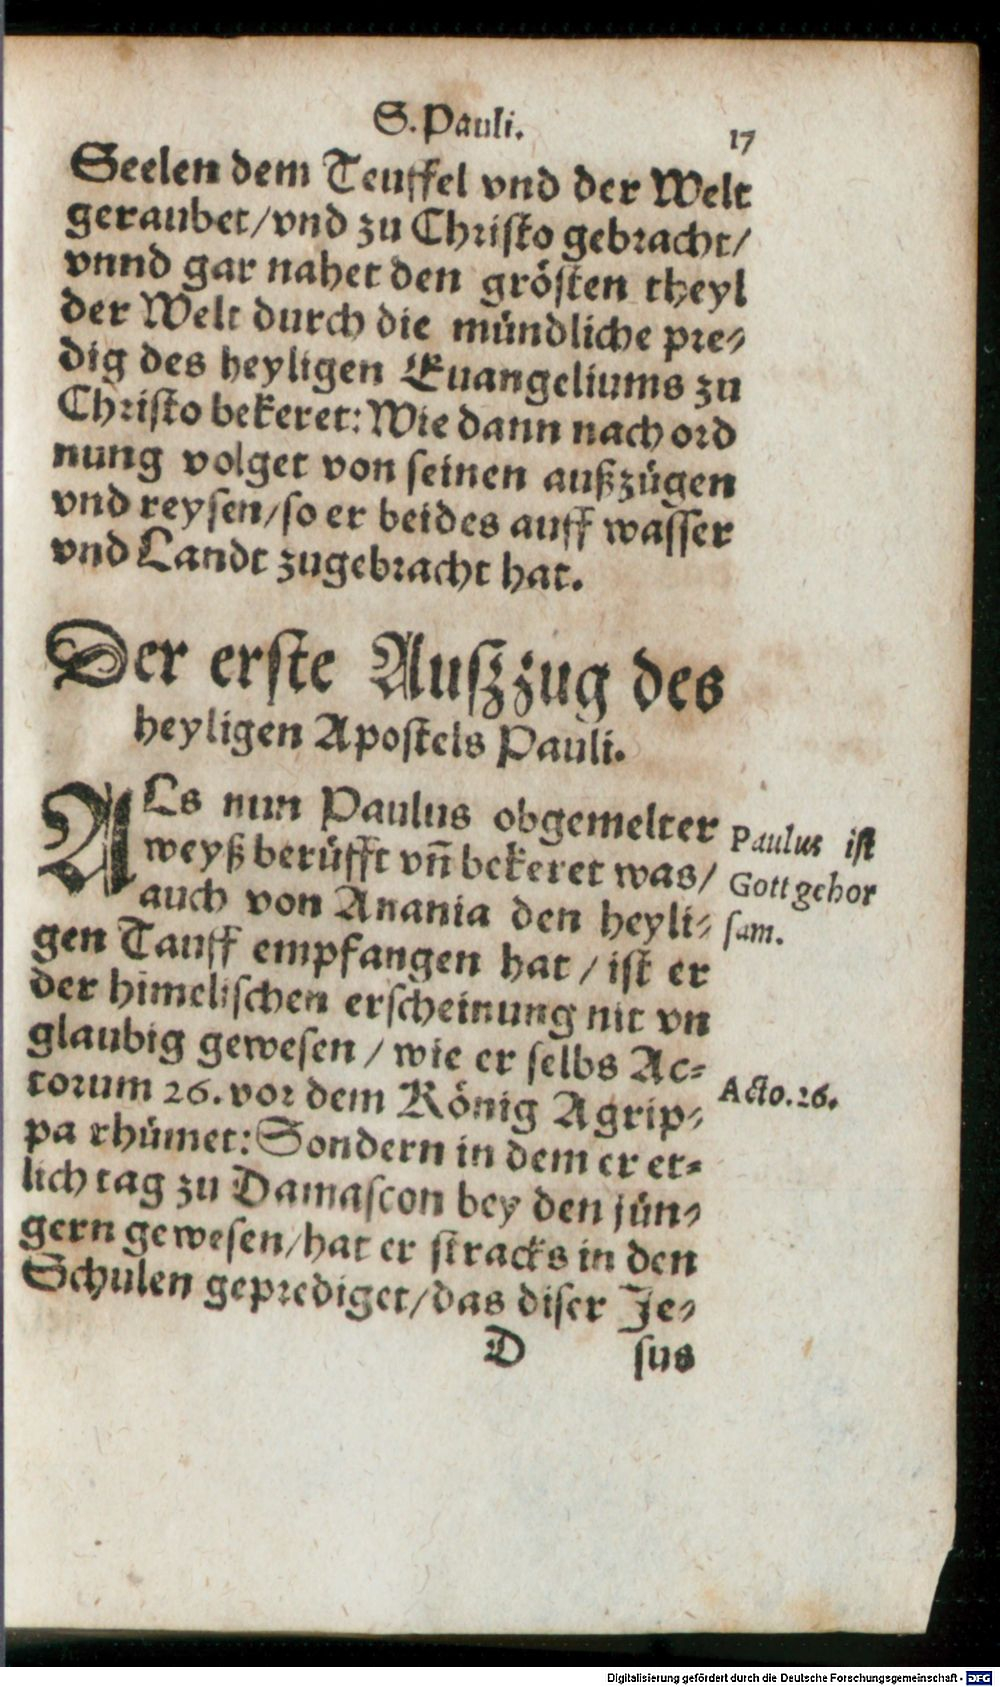 S. Pauli.
17
Seelen dem Teuffel vnd der Welt
geraubet/vnd zu Christo gebracht/
vnnd gar nahet den grösten theyl
der Welt durch die mündliche pre⸗
dig des heyligen Euangeliums zu
Christo bekeret: Wie dann nach ord
nung volget von seinen außzügen
vnd reysen/so er beides auff wasser
vnd Landt zugebracht hat.
Der erste Außzug des
heyligen Apostels Pauli.
ALs nun Paulus obgemelter
weyß berüfft vñ bekeret was/
auch von Anania den heyli⸗
gen Tauff empfangen hat / ist er
der himelischen erscheinung nit vn
glaubig gewesen / wie er selbs Ac⸗
torum 26. vor dem König Agrip⸗
pa rhümet: Sondern in dem er et⸗
lich tag zu Damascon bey den jün⸗
gern gewesen/hat er stracks in den
Schulen geprediget/das diser Je⸗
D sus
Paulus ist
Gott gehor
sam.
Acto. 26.
Digitalisierung gefördert durch die Deutsche Forschungsgemeinschaft - DFG